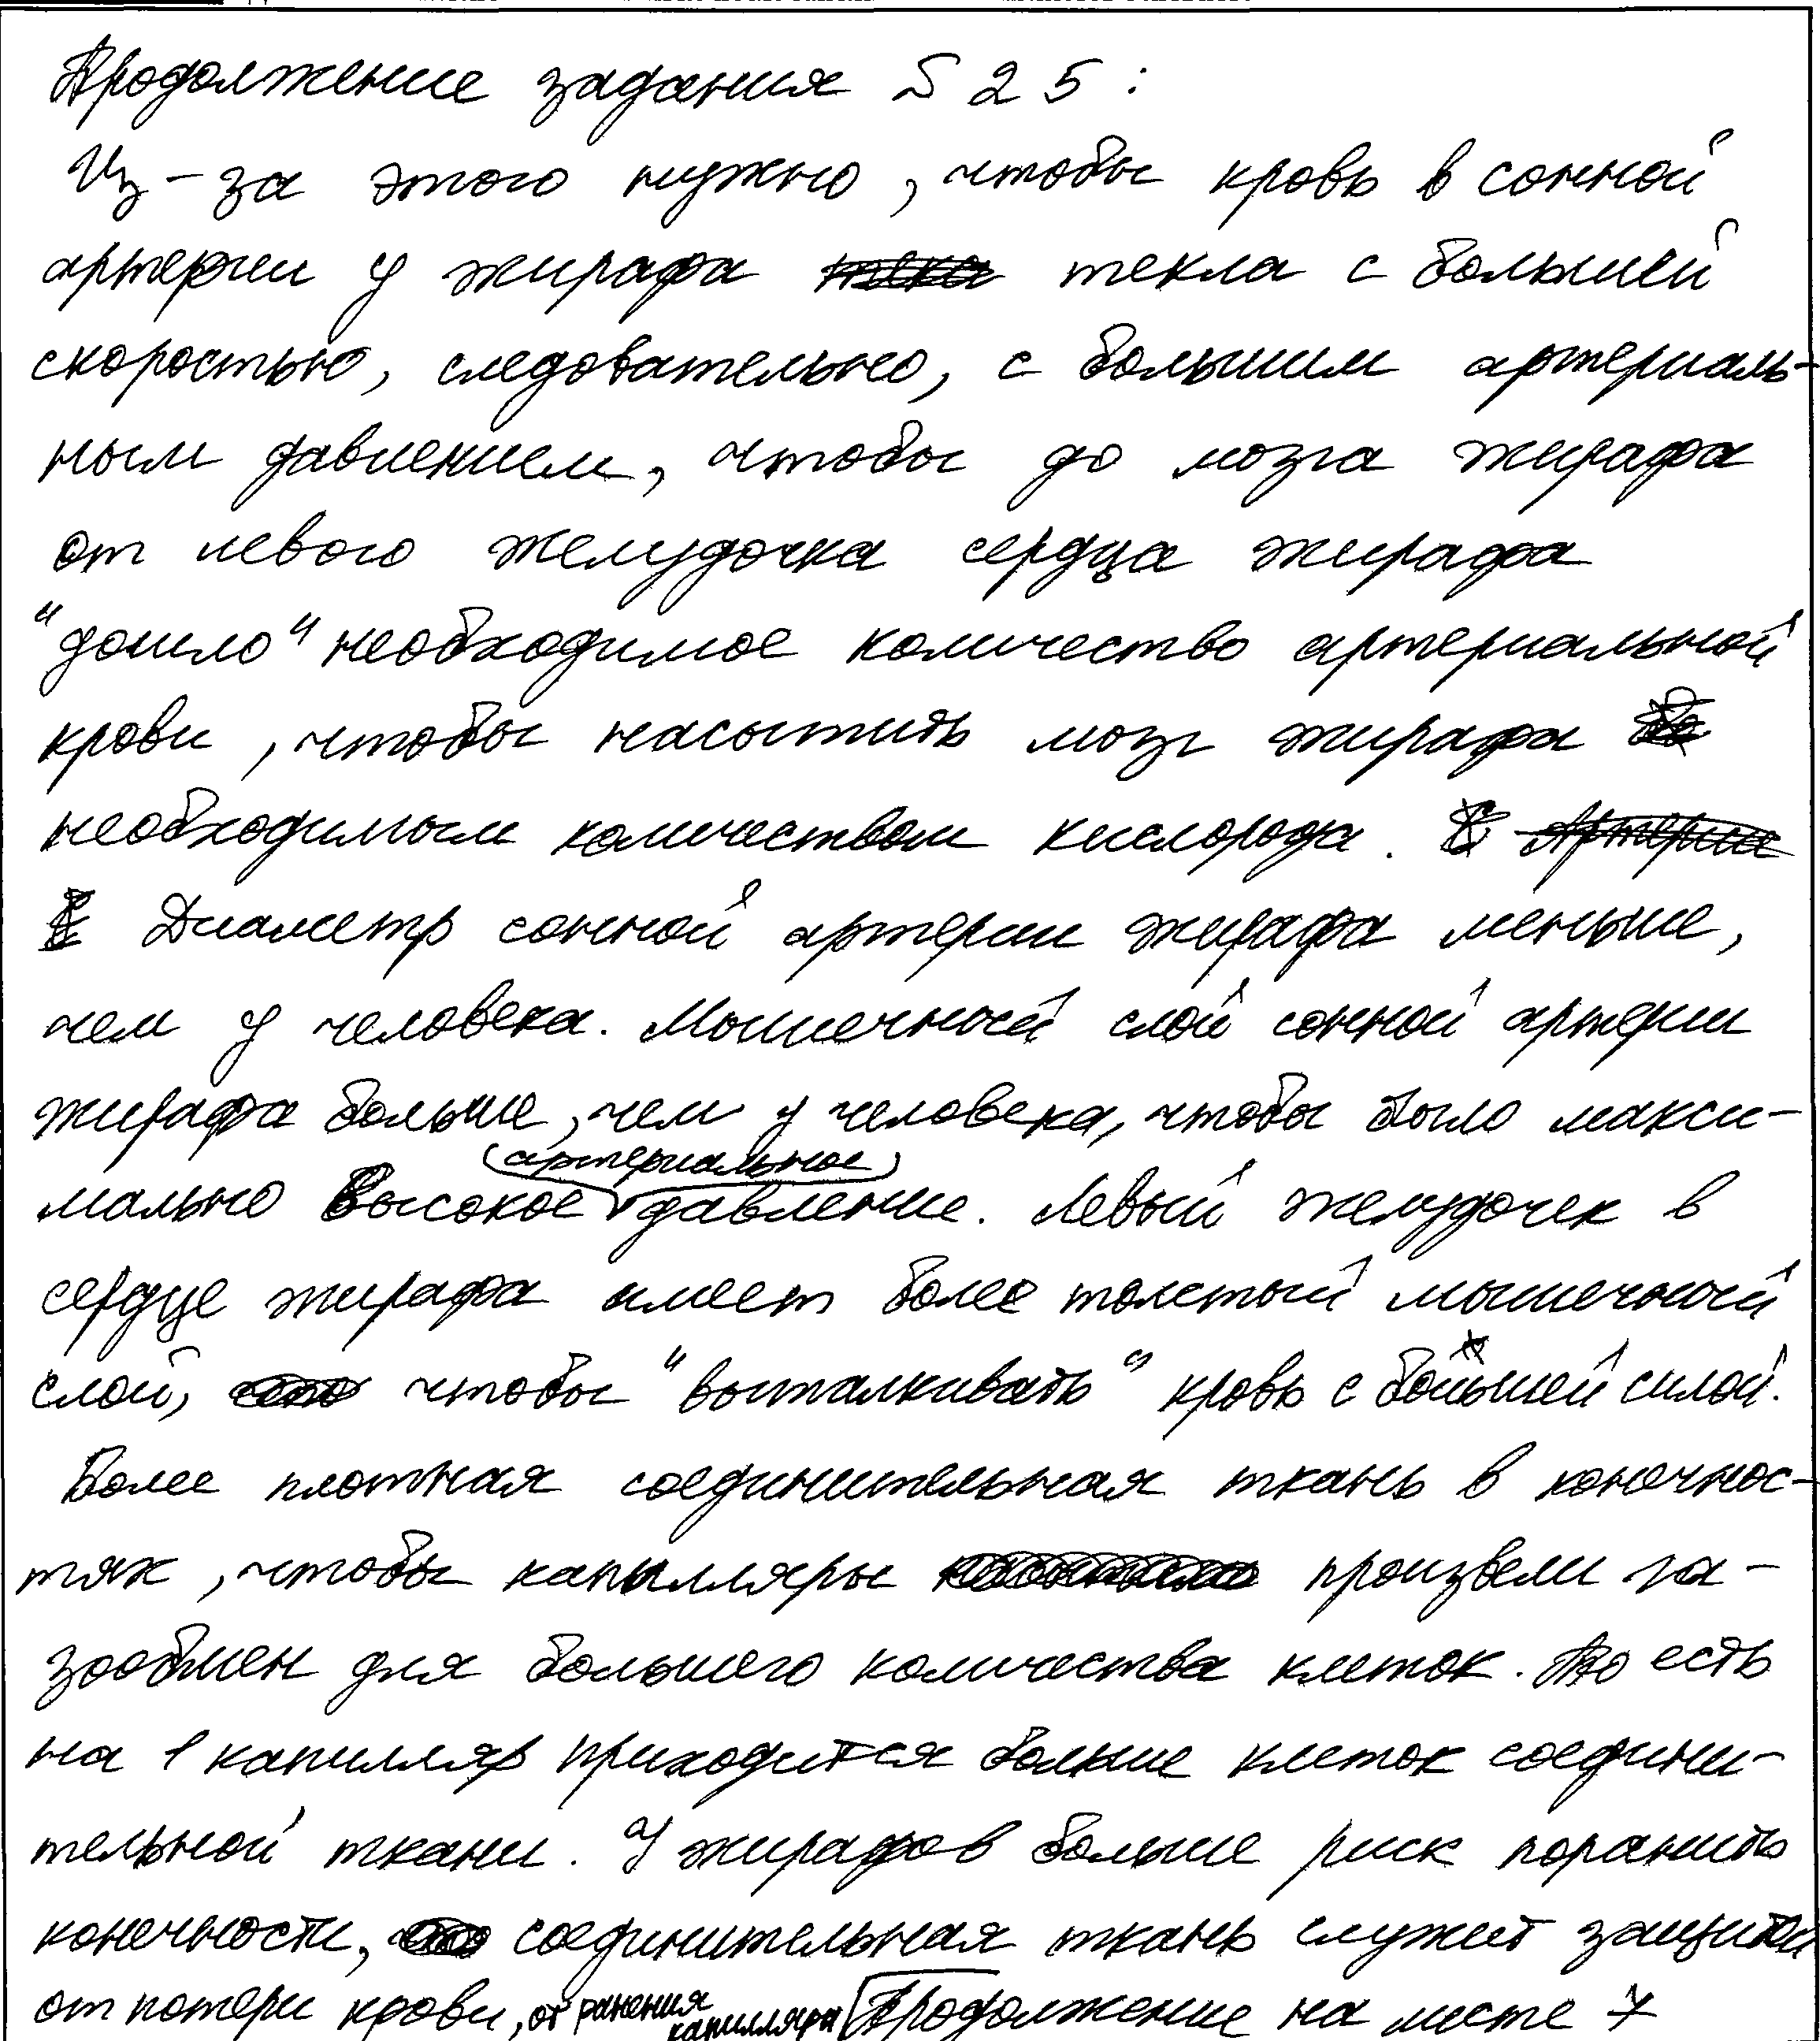 Продолжение задания № 25:
Из-за этого нужно, чтобы кровь в сонной
артерии у жирафа текла с большей
скоростью, следовательно, с большим артериаль-
ным давлением, чтобы до мозга жирафа
от левого желудочка сердца жирафа
"дошло" необходимое количество артериальной
крови, чтобы насытить мозг жирафа
необходимым количеством кислорода.
Диаметр сонной артерии жирафа меньше,
чем у человека. Мышечный слой сонной артерии
жирафа больше, чем у человека, чтобы было макси-
мально высокое (артериальное) давление. Левый желудочек в
сердце жирафа имеет более толстый мышечный
слой, чтобы "выталкивать" кровь с большей силой.
Более плотная соединительная ткань в конечнос-
тях, чтобы капилляры произвели га-
зообмен для большего количества клеток. То есть
на 1 капилляр приходится больше клеток соедини-
тельной ткани. У жирафов больше риск поранить
конечности, соединительная ткань служит защитой
от потери крови, от ранения капилляра Продолжение на листе 7